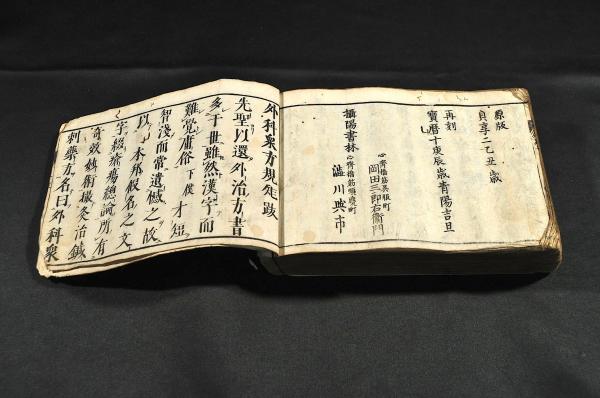 原版
貞享二乙丑歳
再刻
寶暦十庚辰歳青陽吉旦
攝陽書林
心齊橋筋呉服町
岡田三郎右衛門
心齊橋筋順慶町
澁川與市
外科衆方規矩跋
先聖以還外治方書
多于世雖然漢字而
難覚庸俗下僕才短
智淺而常遺憾之故
以本邦假名之文
字綴瘡瘍總論所有
奇效 術 灸治鍼
刺藥方名曰外科衆